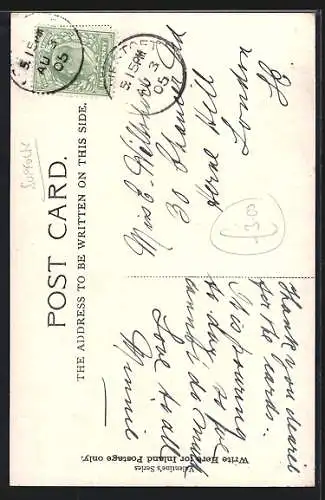 POST CARD.
THE ADDRESS TO BE WRITTEN ON THIS SIDE.
Valentine's Series
Write Here for Inland Postage only.
5.15PM
AU 3
05
5.15PM
AU 3
05
SUFFOLK
£3.00
Miss E.
30
Herne Hill
London
SE
Thank you dearie
for the cards.
It is pouring
to day, so for
can't do much
Love to all
Minnie